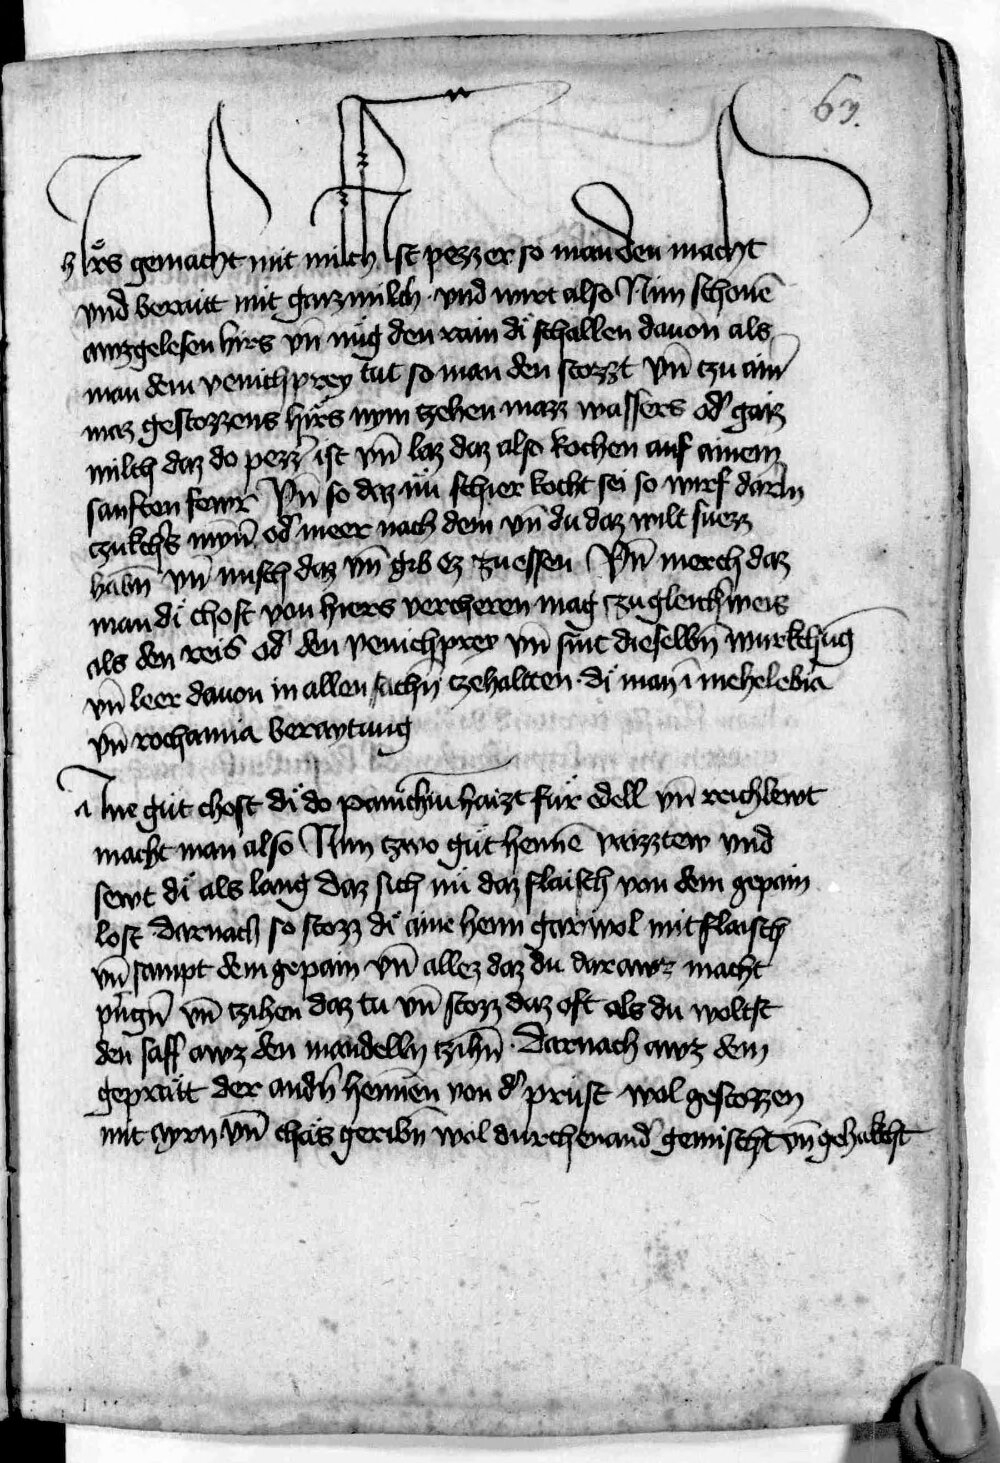 63.
hirs gemacht mit milch Ist pezzer so man den macht
vnd berait mit gaizmilch · vnd wirt also Nim schonē
awzgelesen hirs vn̄ mug den rain di schallen dauon als
man dem venichprey tut so man den stozzt Vn̄ tzu aim̄
maz gestozzens hirs nym tzehen mazz wassers od' gaiz
milch daz do pezz' ist vn̄ laz daz also kochen auf ainem
sanften fewr Vn̄ so daz nü schier kocht sei so wirf darin
tzukch's myn̄ od' meer nach dem vn̄ du daz wilt suezz
habn̄ vn̄ misch daz vn̄ gib ez zuessen Vn̄ merch daz
man di chost von hiers vercheren mag tzu gleich'weis
als den reis od' den venichprey vn̄ sint dieselbn̄ wurkchūg
vn̄ leer dauon in allen sachn̄ tzehalten · di man ī mehelebia
vn̄ rochamia beraytung
aIne güt chost di do haizt für edell vn̄ reichlewt
macht man also Nim tzwo güt hennē vaizztew vnd
sewt di als lang daz sich nü daz flaisch von dem gepain
lost Darnach so stozz di aine henn gar wol mit flaisch
vn̄ sampt dem gepain vn̄ allez daz du darawz macht
vn̄ tzihen daz tu vn̄ stozz daz oft als du woltst
den saff awz den mandelln tzihn̄ · Darnach awz dem
geprätt der andn̄ hennen von d' prüst wol gestozzen
mit ayrn vn̄ chäs geribn̄ wol durchenand' gemischt vn̄ gehakcht